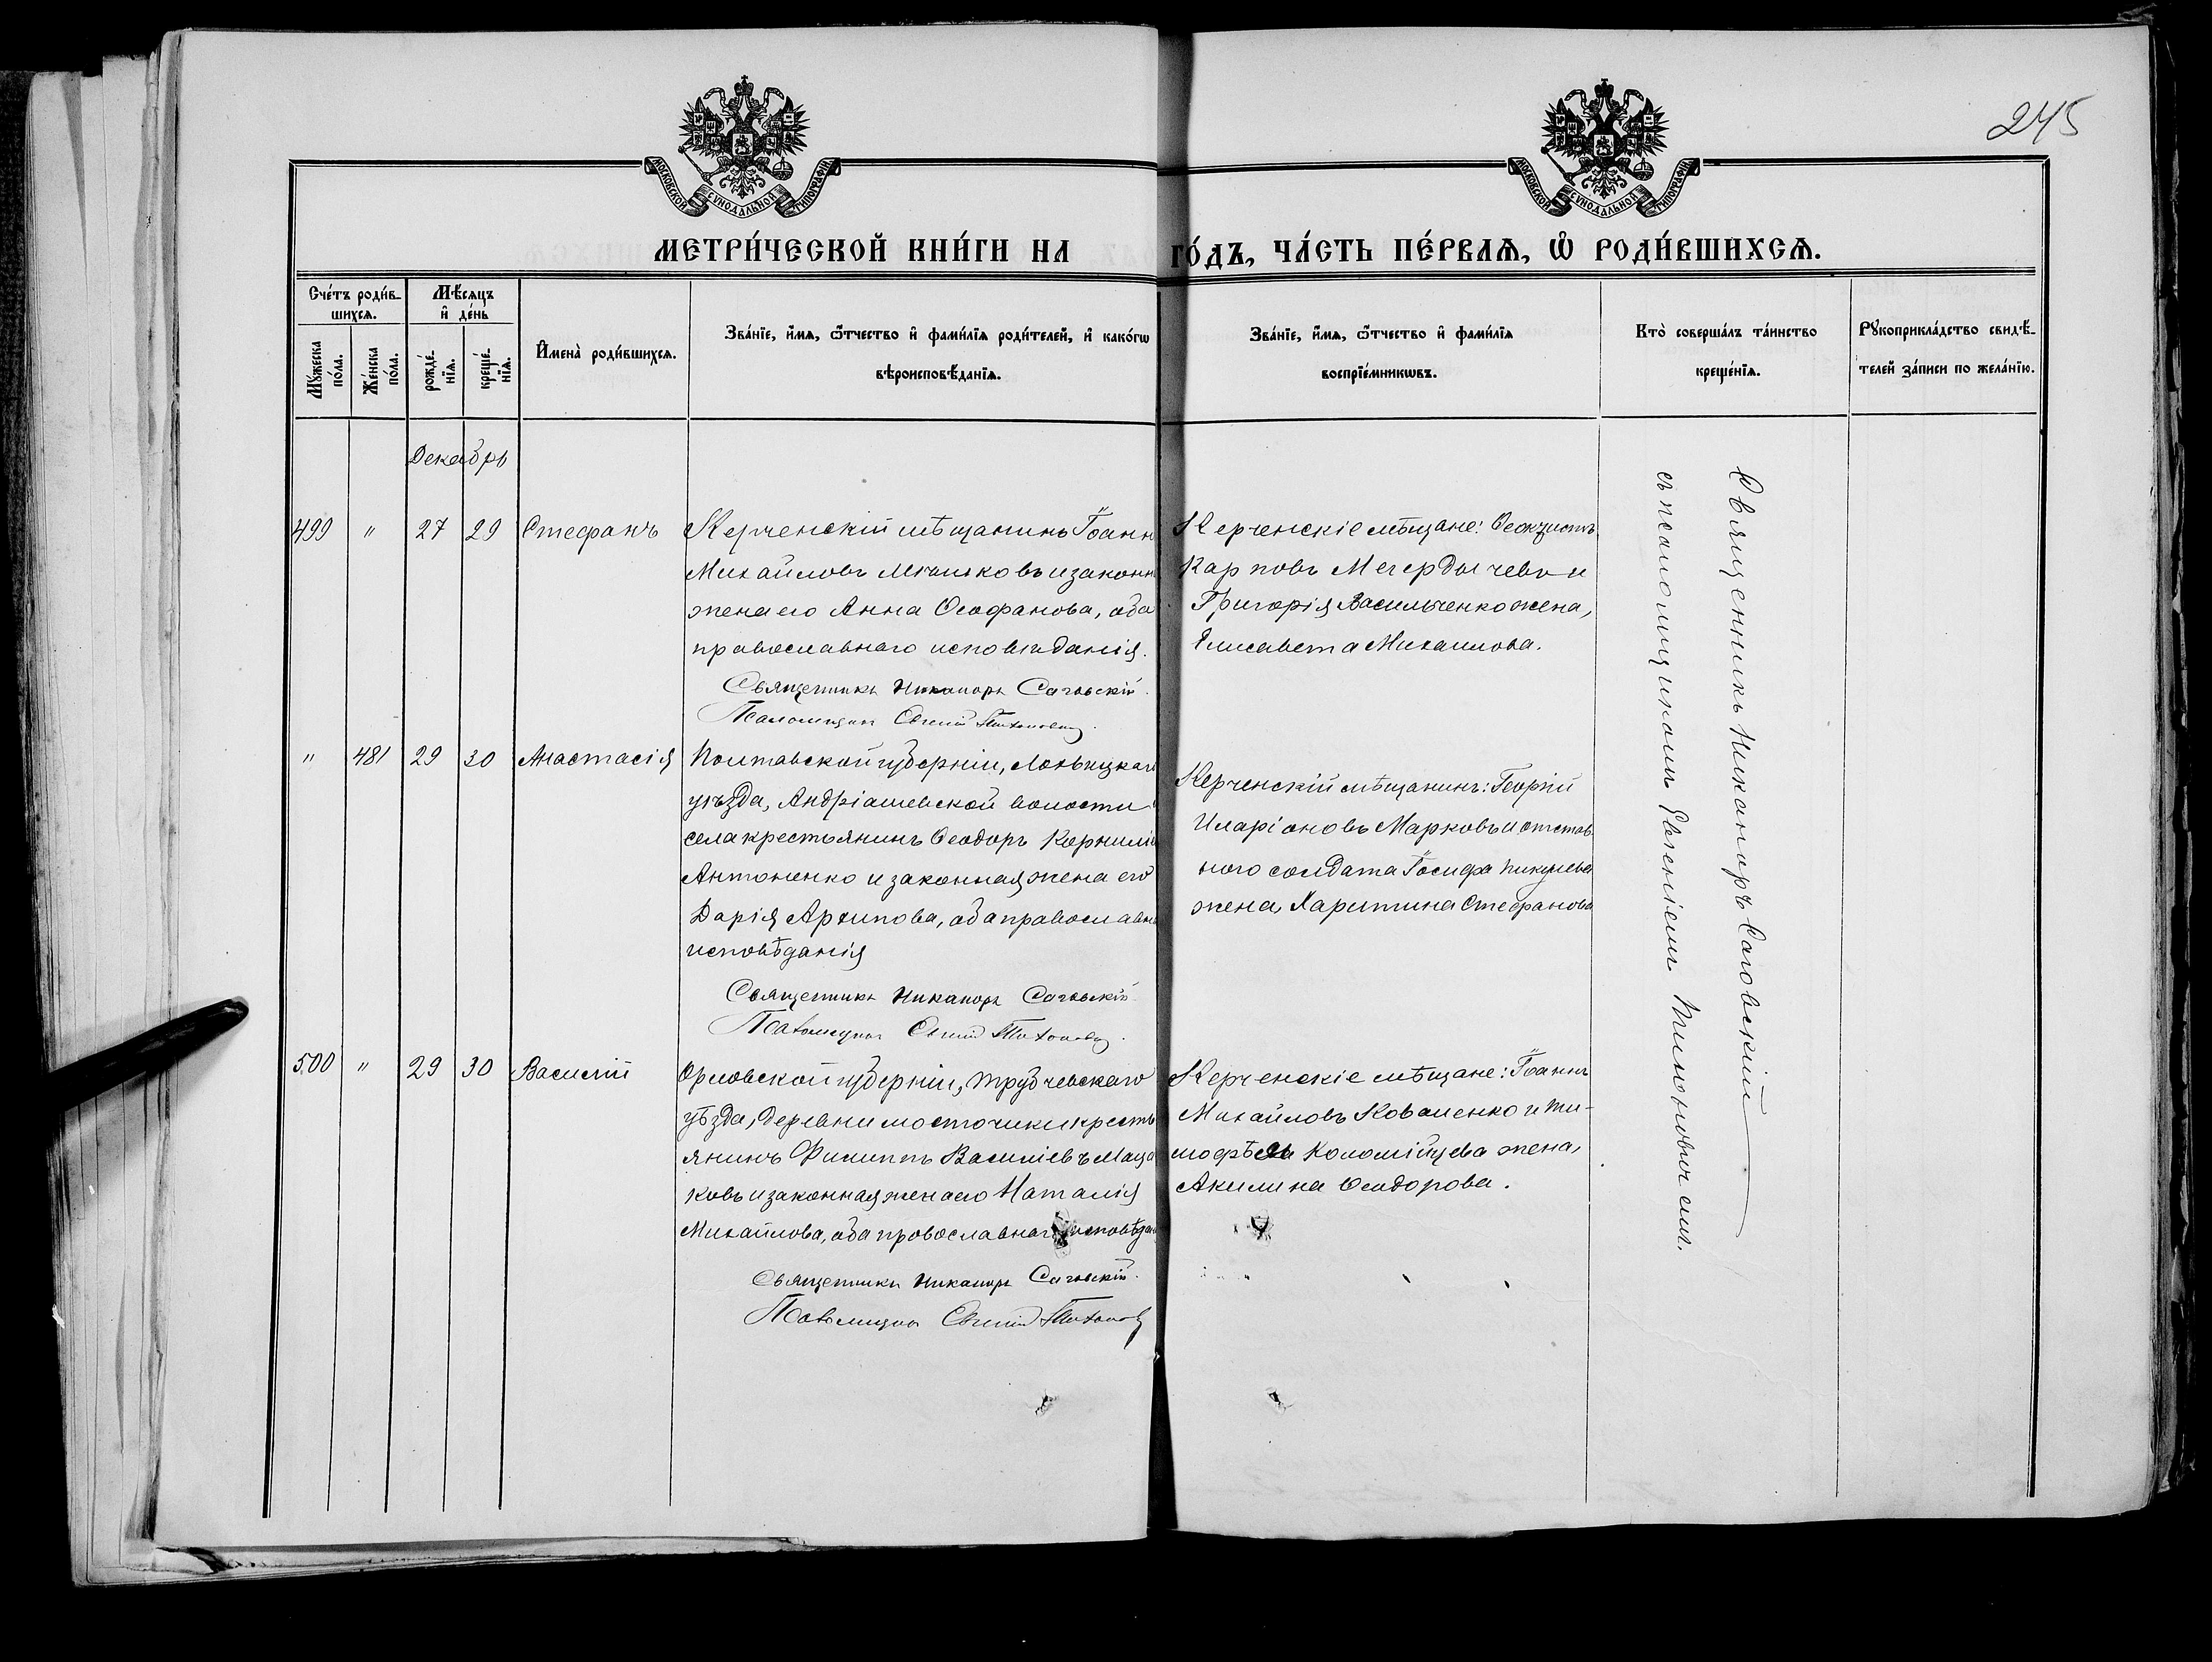 245
МОСКОВСКОЙ СУНОДАЛЬНОЙ ТИПОГРАФІИ
МОСКОВСКОЙ СУНОДАЛЬНОЙ ТИПОГРАФІИ
МЕТРИ́ЧЕСКОЙ КНИ́ГИ НА ГО́ДЪ, ЧА́СТЬ ПЕ́РВАѦ, Ѡ҆ РОДИ́ВШИХСѦ.
Сче́тъ роди́в-
шихсѧ.
Мꙋ́жеска
по́ла.
Же́нска
по́ла.
Мѣ́сѧцъ
и҆ де́нь
рожде́-
нїѧ.
креще́-
нїѧ.
И҆мена̀ роди́вшихсѧ.
Зва́нїе, и҆́мѧ, ѻ҆́тчество и҆ фами́лїѧ роди́телей, и҆ како́гѡ
вѣроисповѣ́данїѧ.
Зва́нїе, и҆́мѧ, ѻ҆́тчество и҆ фами́лїѧ
воспрїе́мникѡвъ.
Кто̀ соверша́лъ та́инство
креще́нїѧ.
Рꙋкоприкла́дство свидѣ́-
телей за́писи по жела́нїю.
Декабрь
499 " 27 29 Стефанъ
Керченскій мѣщанинъ Іоанн
Михайловъ и законн
жена его Анна Ѳеофанова, оба
православнаго исповѣданія.
Священникъ Никаноръ Саговскій.
Псаломщикъ Евгеній Тихонович.
Керченскіе мѣщане: Ѳеоктистъ
Карповъ Мегердычевъ и
Григорія Васильченко жена,
Елисавета Михайлова.
" 481 29 30 Анастасія
Полтавской губерніи, Лохвицкаго
уѣзда, Андріашевской волости
села крестьянинъ Ѳеодоръ Корнилі
Антоненко и законная жена его
Дарія Архипова, оба православн
исповѣданія
Священникъ Никаноръ Саговскій
Псаломщикъ Евгеній Тихонович.
Керченскій мѣщанинъ: Георгій
Иларіоновъ Марковъ и отстав
ного солдата Іосифа
жена, Харитина Стефанова
500 " 29 30 Василій
Орловской губерніи, Трубчевскаго
уѣзда, деревни Мосточики кресть
янинъ Филиппъ Василіевъ Маца
ковъ и законная жена его Наталія
Михайлова, оба провославнаго исповѣдан
Священникъ Никаноръ Саговскій.
Псаломщикъ Евгеній Тихонов
Керченскіе мѣщане: Іоаннъ
Михайловъ Коваленко и Ти-
мофѣя Коломійцева жена,
Акилина Ѳеодорова.
Священникъ Никаноръ Саговскій
съ псаломщикомъ Евгеніемъ Тихоновичемъ.